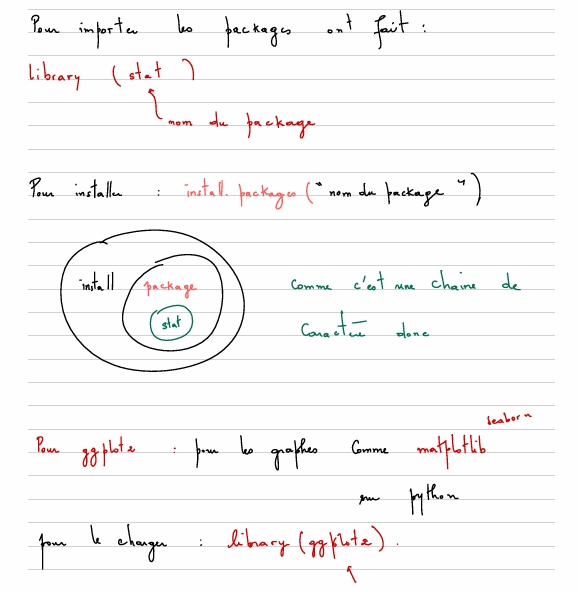 Pour importer les packages ont fait :
library ( stat )
nom du package
Pour installer : install.packages (" nom du package ")
install package
stat
Comme c'est une chaine de
Caractère donc
seaborn
Pour ggplote : pour les graphes Comme matplotlib
sur python
pour le charger : library (ggplote) .